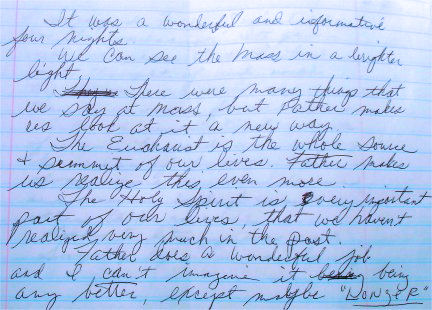 It was a wonderful and informative
four nights.
We can see the Mass in a brighter
light
There were many things that
we say at Mass, but Father makes
us look at it a new way.
The Eucharist is the whole source
& summit of our lives. Father makes
us realize this even more.
The Holy Spirit is every important
part of our lives, that we haven't
realized very much in the past.
Father does a wonderful job
and I can't imagine it being
any better, except maybe "LONGER"